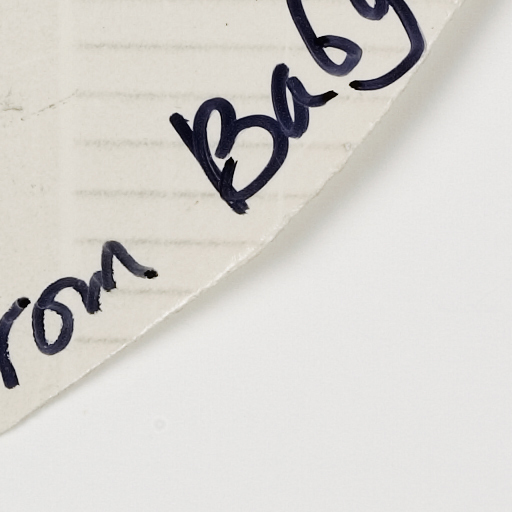 rom Baby